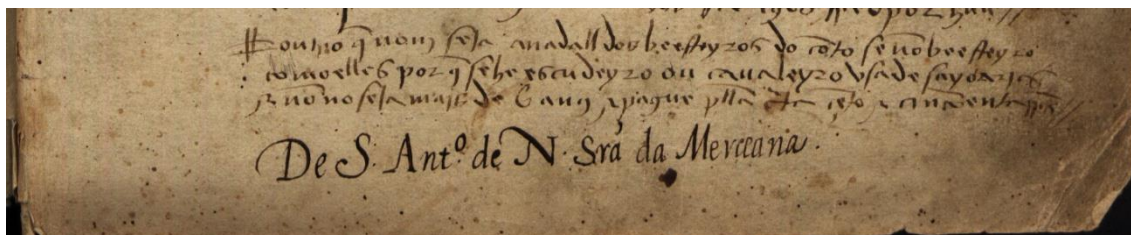 outro q̃ nom seia anadall dos beesteyros do cõto se nõ beesteyro
como elles por q̃ se he escudeyro ou caualeyro vsa de
nõ no seia mais de pague cẽto
De S. Antº. de N. Srã da Merceana.